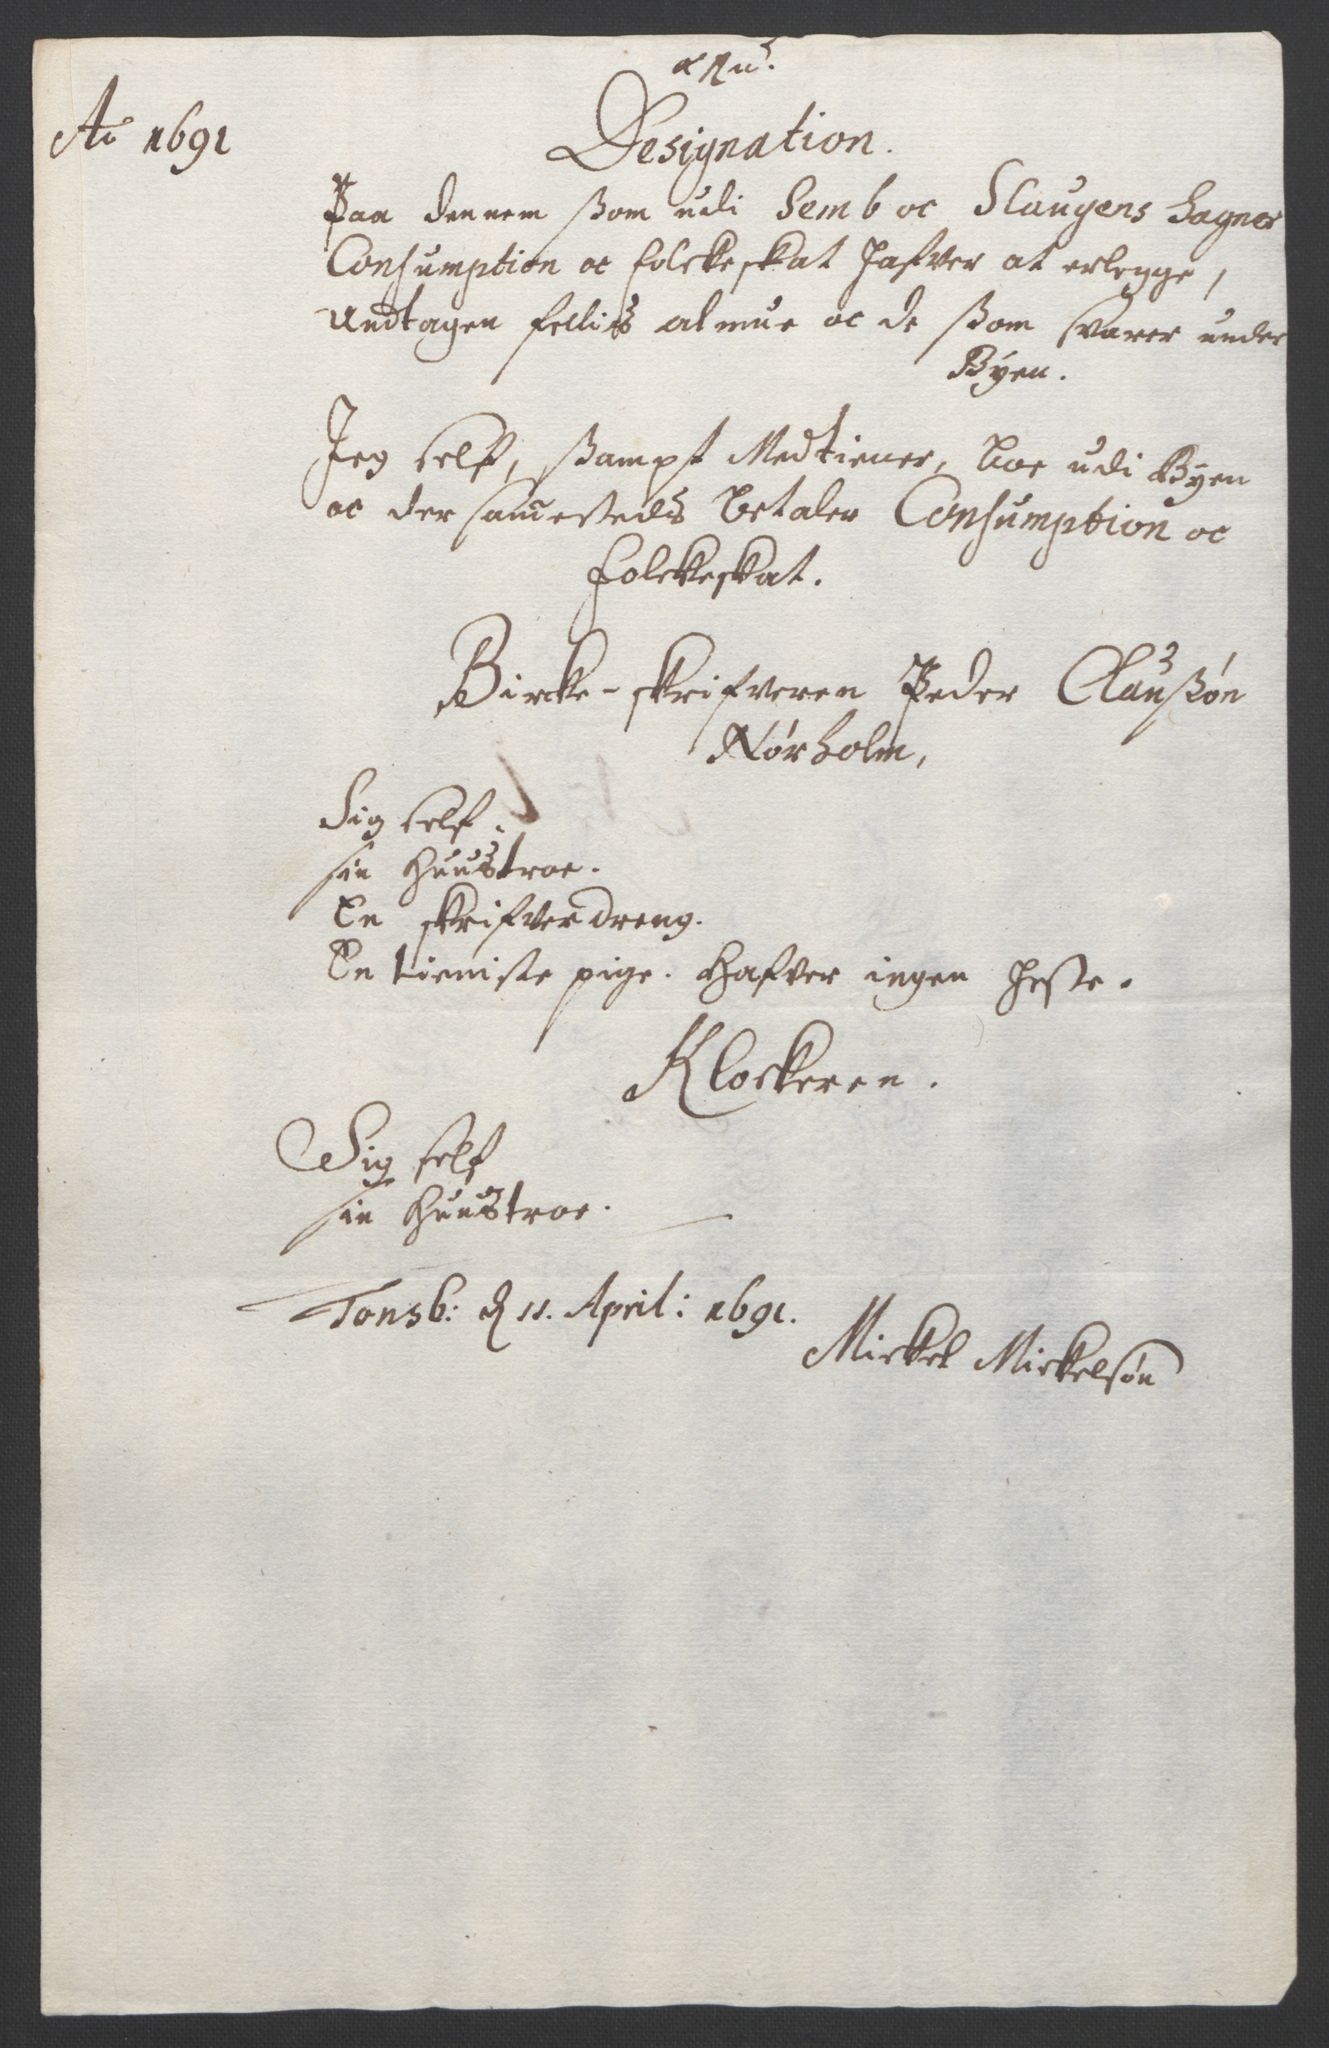 Ao 1691
Designation.
Paa dennem ßom udi Semb oc Slaugens Sogner
Consumption oc folckeskat hafver at erlegge,
Undtagen fellis almue oc de ßom svarer under
Byen.
Jeg self, ßampt Medtiener, boe udi Byen
oc der sam̅esteds betaler Consumption oc
folckeskat.
Bircke-skrifveren Peder Claußøn
Nørholm,
Sig self.
sin Huustroe.
En skrifverdreng.
En tieniste pige. Hafver ingen heste.
Klockeren.
Sig self
sin Huustroe.
Tonsb: d 11. April: 1691.
Mickel Mickelsøn